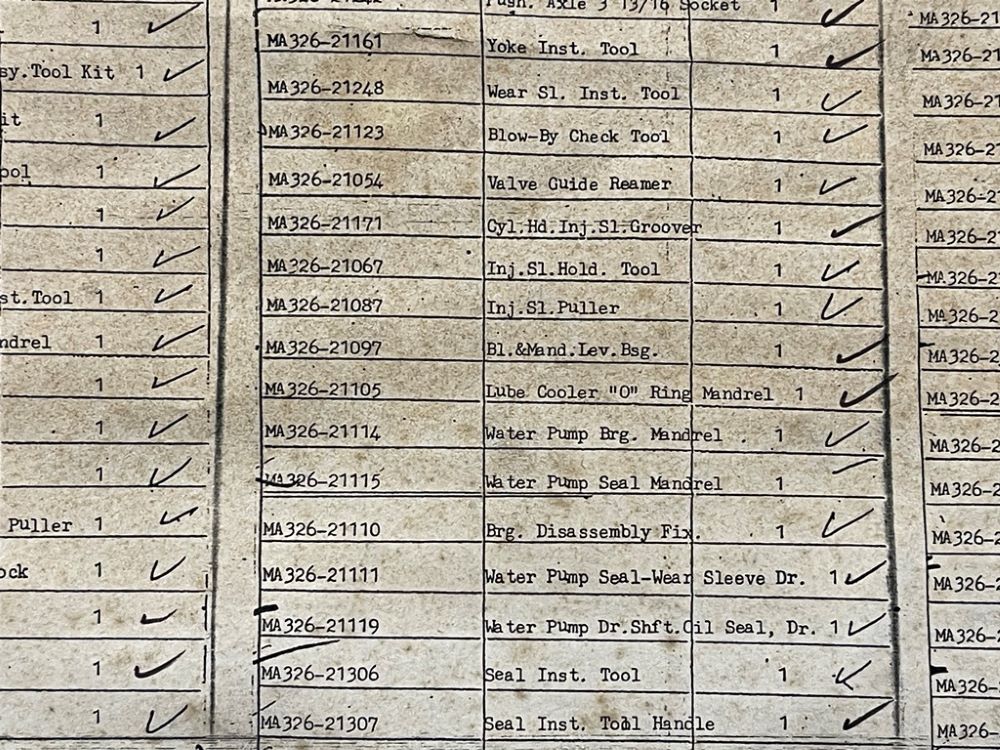 1
Push. Axle 3 13/16 Socket 1
MA326-21
MA326-21161 Yoke Inst. Tool 1
MA326-21
sy.Tool Kit 1
MA326-21248 Wear Sl. Inst. Tool 1
MA326-21
it 1
MA326-21123 Blow-By Check Tool 1
MA326-21
ool 1
MA326-21054 Valve Guide Reamer 1
MA326-21
1
MA326-21171 Cyl.Hd.Inj.Sl.Groover 1
MA326-21
1
MA326-21067 Inj.Sl.Hold. Tool 1
MA326-21
st.Tool 1
MA326-21087 Inj.Sl.Puller 1
MA326-2
ndrel 1
MA326-21097 Bl.&Mand.Lev.Bsg. 1
MA326-2
1
MA326-21105 Lube Cooler "O" Ring Mandrel 1
MA326-2
1
MA326-21114 Water Pump Brg. Mandrel 1
MA326-2
1
MA326-21115 Water Pump Seal Mandrel 1
MA326-2
Puller 1
MA326-21110 Brg. Disassembly Fix. 1
MA326-2
ock 1
MA326-21111 Water Pump Seal-Wear Sleeve Dr. 1
MA326-2
1
MA326-21119 Water Pump Dr.Shft.Oil Seal, Dr. 1
MA326-2
1
MA326-21306 Seal Inst. Tool 1
MA326-
1
MA326-21307 Seal Inst. Tool Handle 1
MA326-